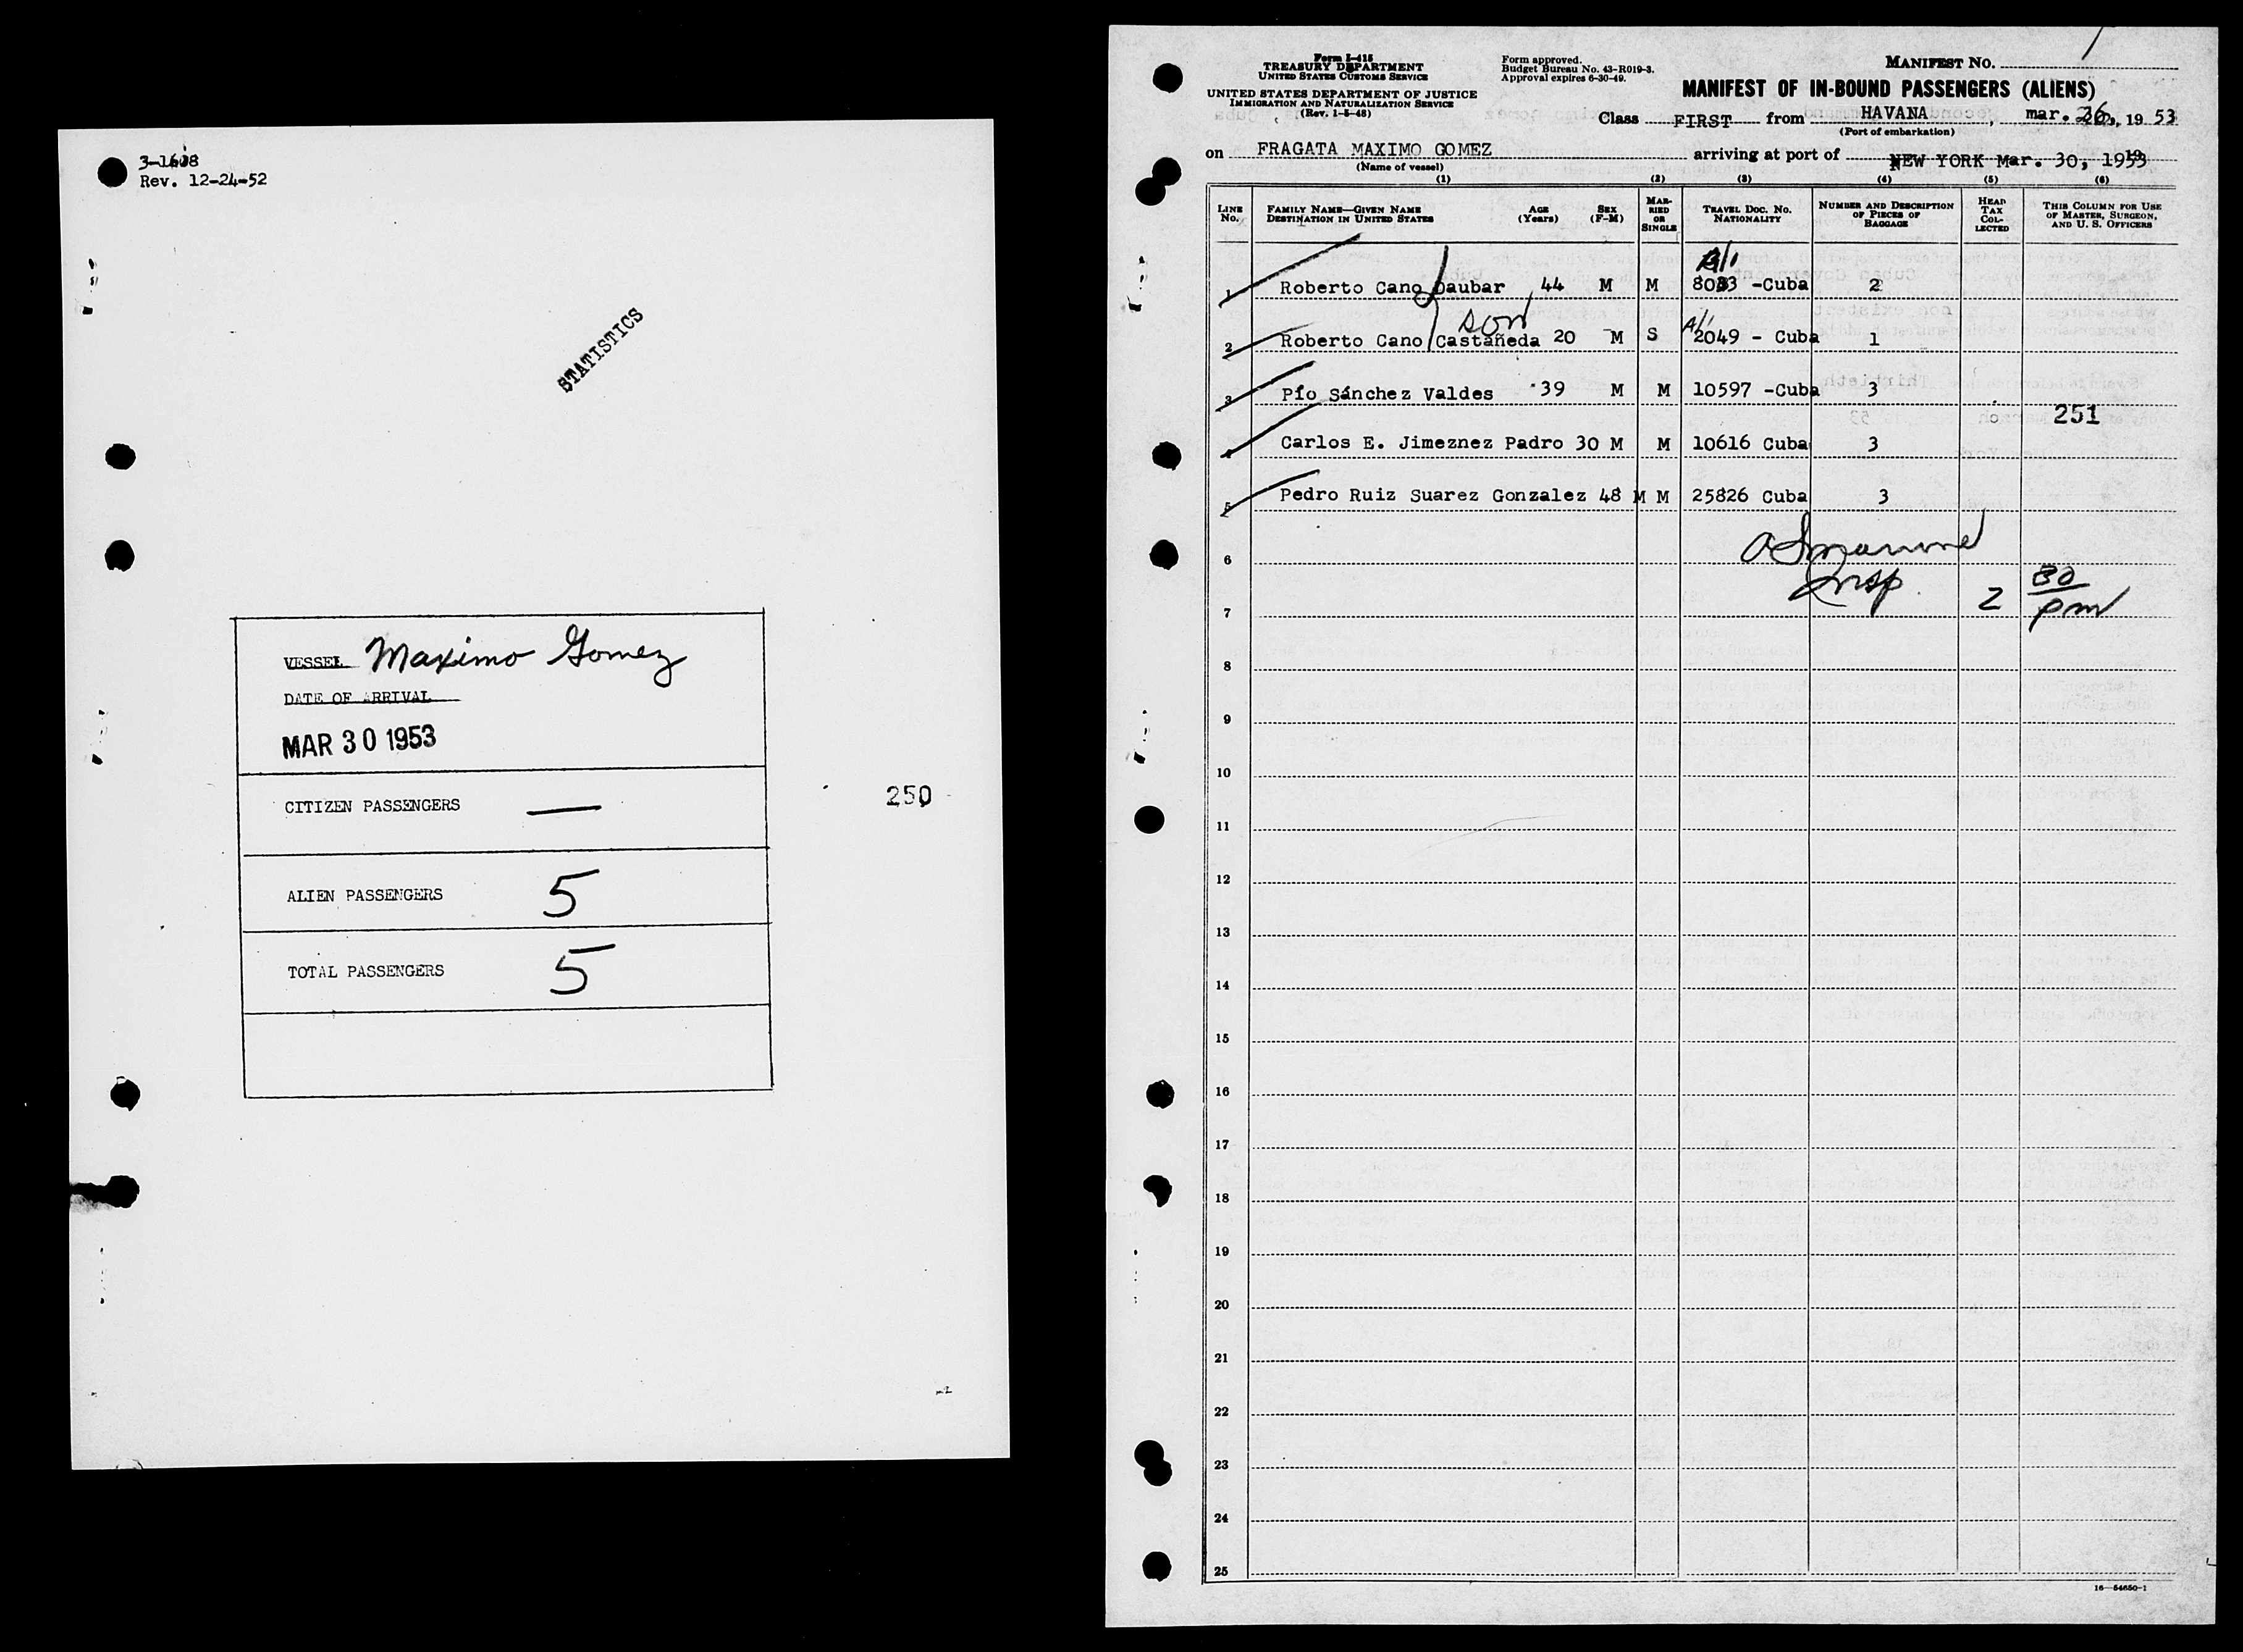 3-1608
Rev. 12-24-52
STATISTICS
VESSEL Maximo Gomez
DATE OF ARRIVAL
MAR 30 1953
CITIZEN PASSENGERS —
250
ALIEN PASSENGERS 5
TOTAL PASSENGERS 5
Form I-415
TREASURY DEPARTMENT
UNITED STATES CUSTOMS SERVICE
UNITED STATES DEPARTMENT OF JUSTICE
IMMIGRATION AND NATURALIZATION SERVICE
(Rev. 1-5-48)
Form approved.
Budget Bureau No. 43-R019-3.
Approval expires 6-30-49.
MANIFEST NO. 1
MANIFEST OF IN-BOUND PASSENGERS (ALIENS)
Class FIRST from HAVANA, mar. 26, 19 53
(Port of embarkation)
on FRAGATA MAXIMO GOMEZ arriving at port of NEW YORK Mar. 30, 1953
(Name of vessel)
(1) (2) (3) (4) (5) (6)
LINE No. FAMILY NAME—GIVEN NAME DESTINATION IN UNITED STATES AGE (Years) SEX (F-M) MARRIED OR SINGLE TRAVEL DOC. NO. NATIONALITY NUMBER AND DESCRIPTION OF PIECES OF BAGGAGE HEAD TAX COLLECTED THIS COLUMN FOR USE OF MASTER, SURGEON, AND U. S. OFFICERS
A/1
1 Roberto Cano Daubar 44 M M 8033 -Cuba 2
son
A/1
2 Roberto Cano Castañeda 20 M S 2049 - Cuba 1
3 Pío Sánchez Valdes 39 M M 10597 -Cuba 3
251
4 Carlos E. Jimeznez Padro 30 M M 10616 Cuba 3
5 Pedro Ruiz Suarez Gonzalez 48 M M 25826 Cuba 3
6
Insp. 2 30 pm
7
8
9
10
11
12
13
14
15
16
17
18
19
20
21
22
23
24
25
16—54650-1